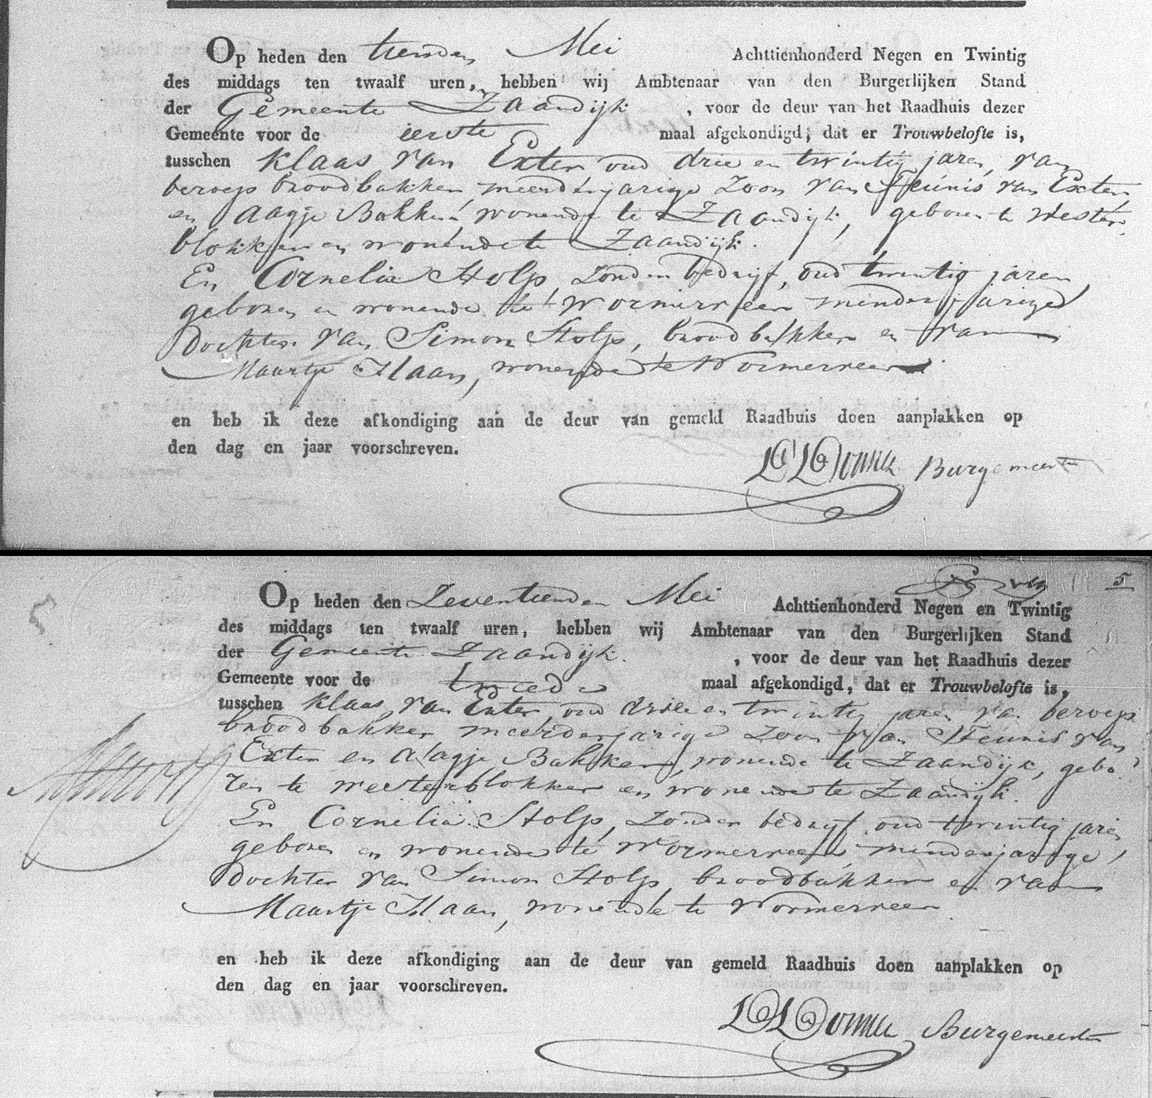 Op heden den tienden Mei Achttienhonderd Negen en Twintig
des middags ten twaalf uren, hebben wij Ambtenaar van den Burgerlijken Stand
der Gemeente Zaandijk , voor de deur van het Raadhuis dezer
Gemeente voor de eerste maal afgekondigd, dat er Trouwbelofte is,
tusschen Klaas van Exter oud drie en twintig jaren, van
beroep broodbakker meerderjarige Zoon van Teunis van Exter
en Aagje Bakker wonende te Zaandijk, geboren te Wester
blokker en wonende te Zaandijk.
En Cornelia Stolp zonder bedrijf, oud twintig jaren
geboren en wonende te Wormerveer minderjarige
Dochter van Simon Stolp, broodbakker en van
Maartje Haan, wonende te Wormerveer
en heb ik deze afkondiging aan de deur van gemeld Raadhuis doen aanplakken op
den dag en jaar voorschreven.
Donker Burgemeester
5
Op heden den Zeventienden Mei Achttienhonderd Negen en Twintig
des middags ten twaalf uren, hebben wij Ambtenaar van den Burgerlijken Stand
der Gemeente Zaandijk. , voor de deur van het Raadhuis dezer
Gemeente voor de tweede maal afgekondigd, dat er Trouwbelofte is,
tusschen Klaas van Exter oud drie en twintig jaren van beroep
broodbakker, meerderjarige Zoon van Teunis van
Exter en Aagje Bakker, wonende te Zaandijk, gebo
ren te Westerblokker en wonende te Zaandijk.
En Cornelia Stolp, Zonder bedrijf oud twintig jaren
geboren en wonende te Wormerveer minderjarige,
Dochter van Simon Stolp, broodbakker en van
Maartje Haan, wonende te Wormerveer
en heb ik deze afkondiging aan de deur van gemeld Raadhuis doen aanplakken op
den dag en jaar voorschreven.
Donker Burgemeester